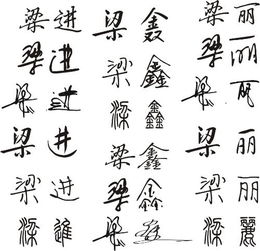 梁进
梁进
梁进
梁进
梁进
梁進
梁鑫
梁鑫
梁鑫
梁鑫
梁鑫
梁
梁丽
梁丽
梁丽
梁丽
梁丽
梁麗